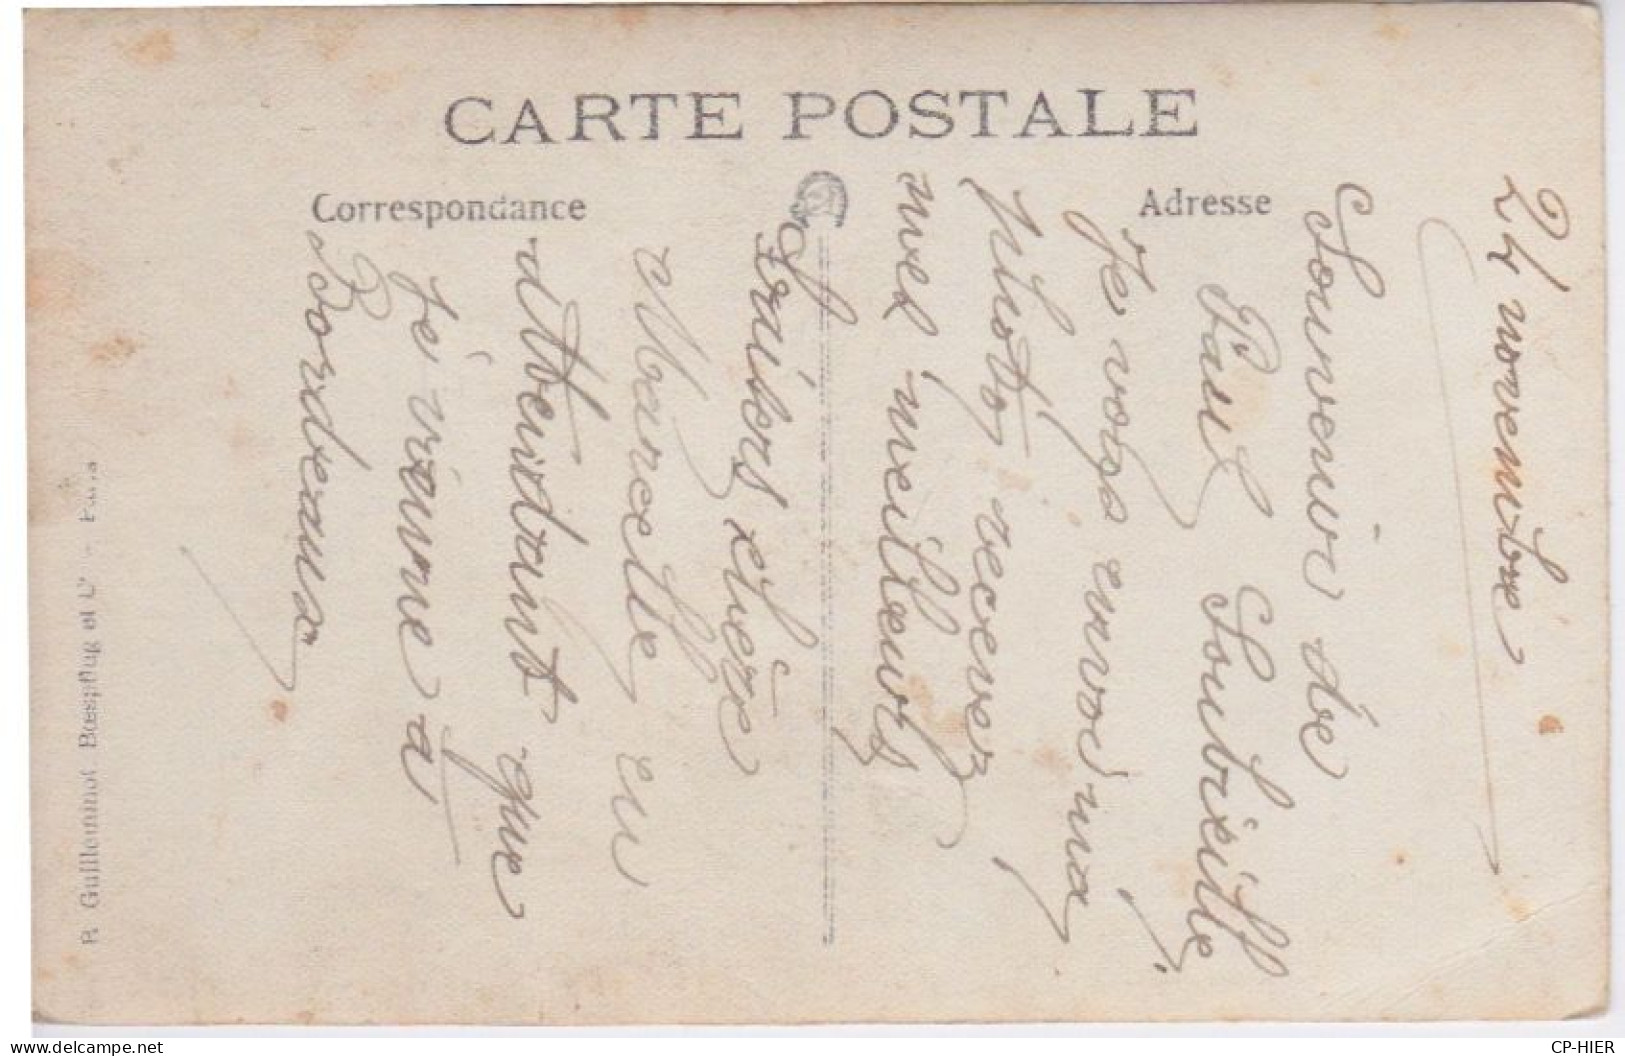 CARTE POSTALE
Correspondance
Adresse
24 novembre
Souvenir de
Paul Soubixeille
Je vous envoi ma
photo recevez
mes meilleurs
Baisers chère
Marcelle en
attendant que
je vienne a
Bordeaux
R. Guilleminot Bœspflug et Cie - Paris
CP-HIER
delcampe.net